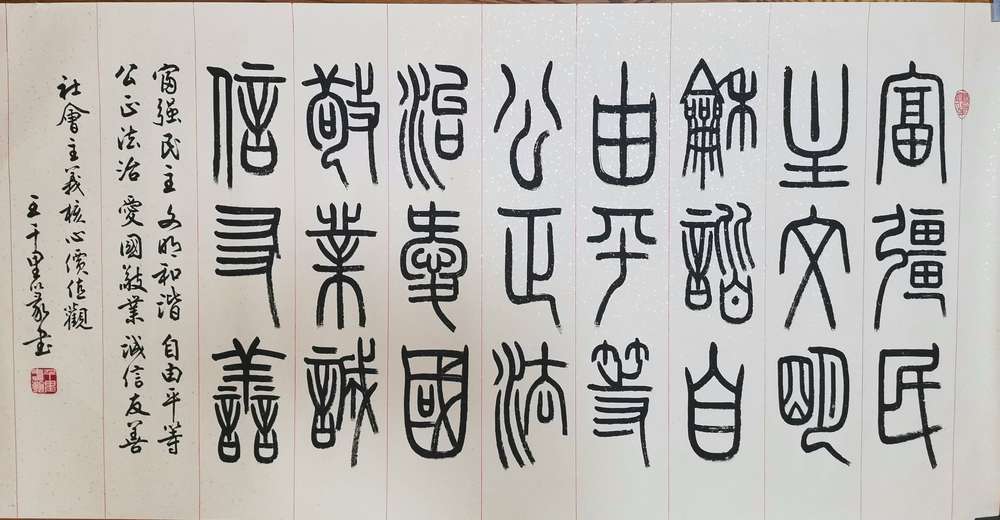 富彊民
主文明
龢諧自
由平等
公正法
治愛國
敬業誠
信友善
富强民主文明和諧自由平等
公正法治愛國敬業誠信友善
社會主義核心價值觀
王千里篆書